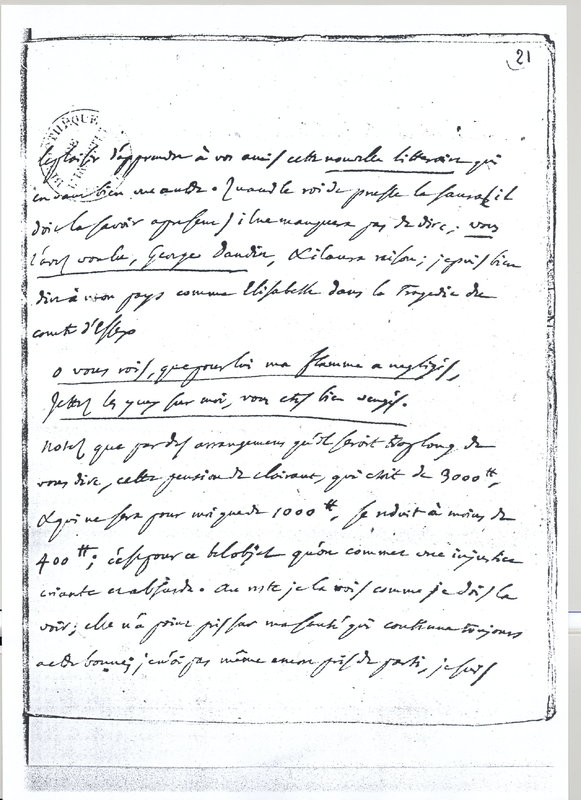 21
le plaisir d'apprendre à vos amis cette nouvelle litteraire qui
en vaut bien une autre. Quand le roi de prusse la saura (il
doit la savoir à present) il ne manquera pas de dire, vous
l'avez voulu, George Dandin, & il aura raison; je puis bien
dire à mon pays comme Elisabeth dans la Tragedie du
comte d'Essex
O vous rois, que pour lui ma flamme a negligés,
Jettez les yeux sur moi, vous etes bien vengés.
Notez que par des arrangemens qu'il seroit trop long de
vous dire, cette pension de clairaut, qui etoit de 3000 ⁠tt,
& qui ne sera pour moi que de 1000 tt, se reduit à moins de
400 tt; c'est pour ce bel objet qu'on commet une injustice
criante et absurde. Au reste je la vois comme je dois la
voir; elle n'a point pris sur ma santé qui continue toujours
a etre bonne; je n'ai pas même encor pris de parti, je suis